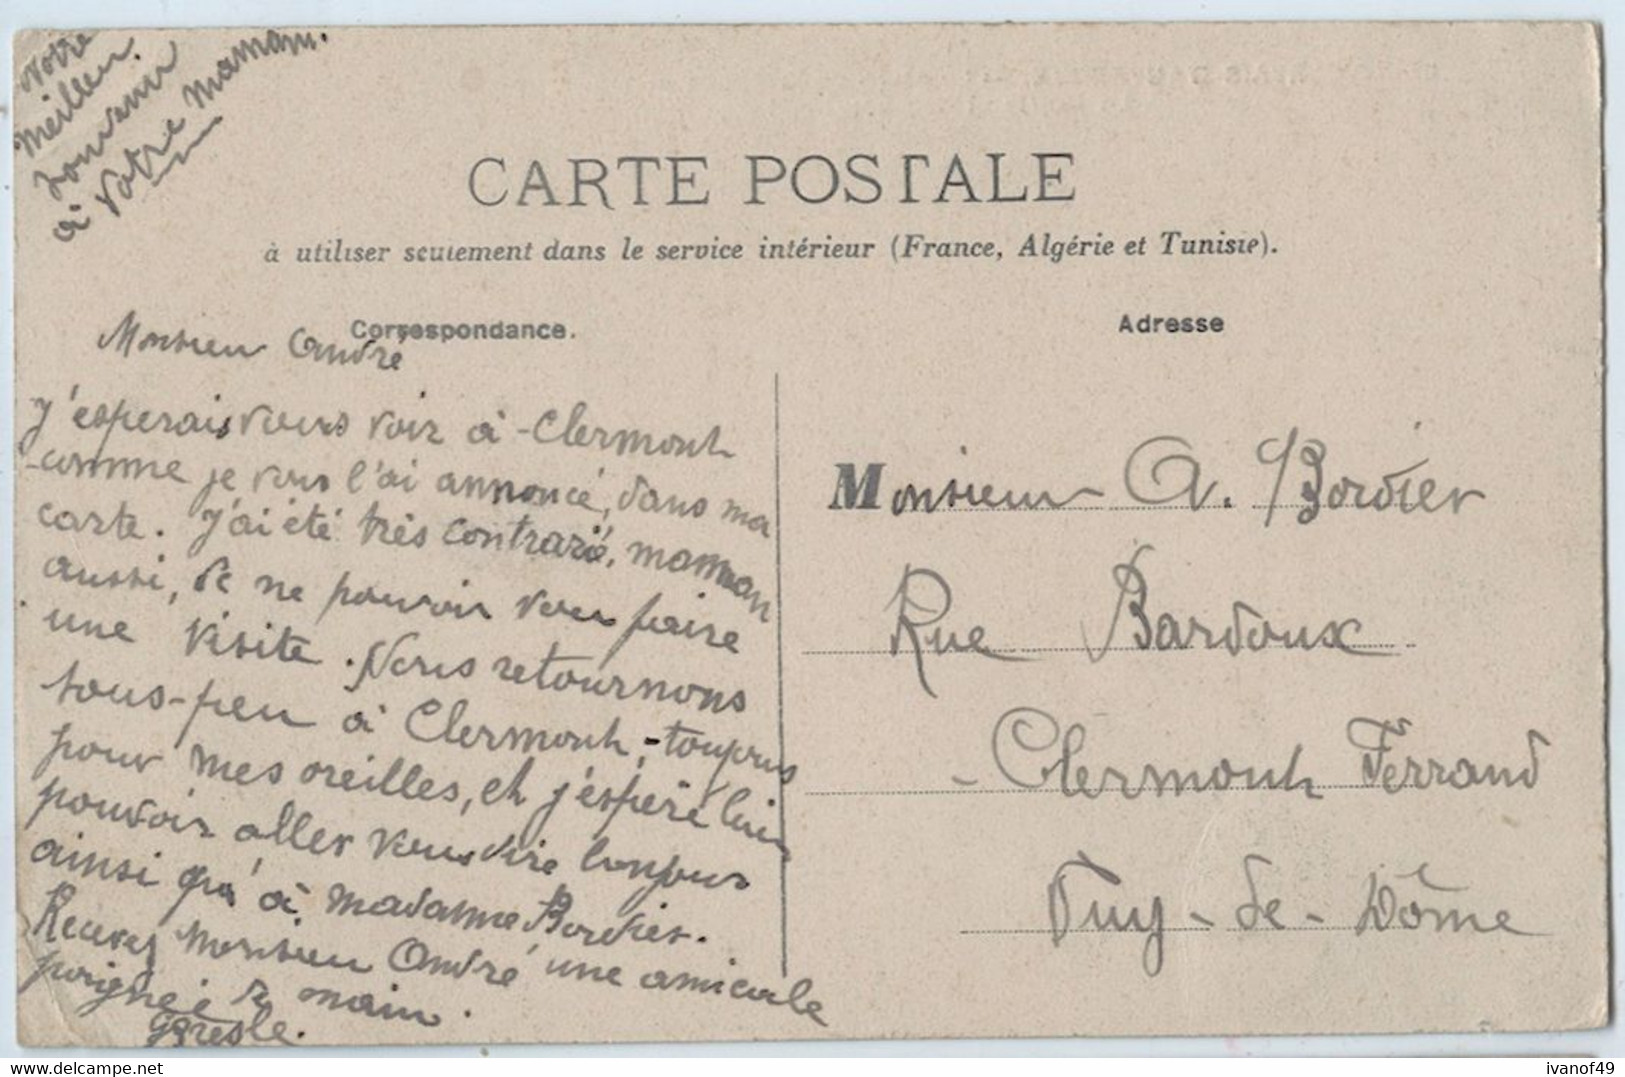 Notre
meilleur
souvenir
à votre maman.
CARTE POSTALE
à utiliser seulement dans le service intérieur (France, Algérie et Tunisie).
Correspondance.
Adresse
Monsieur André
J'esperais vous voir à Clermont
comme je vous l'ai annoncé, dans ma
carte. J'ai été très contrarié, maman
aussi, de ne pouvoir vous faire
une visite. Nous retournons
sous-peu à Clermont, toujours
pour mes oreilles, et j'espère bien
pouvoir aller vous dire bonjour
ainsi qu'à madame Bordier.
Recevez Monsieur André une amicale
poignée de main.
Monsieur A. Bordier
Rue Bardoux
Clermont Ferrand
Puy-de-Dôme
ivanof49